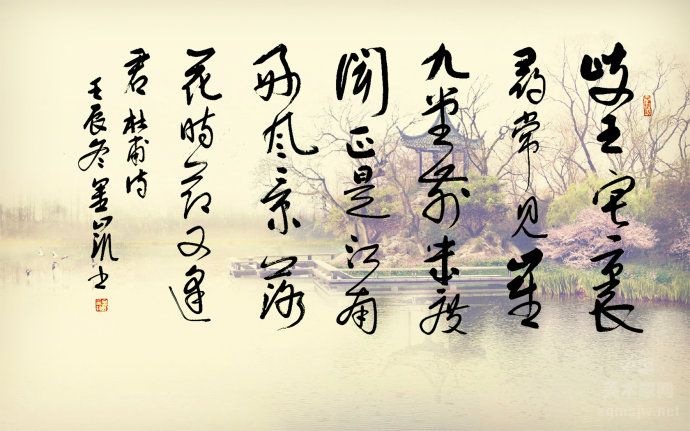 岐王宅裏
尋常見崔
九堂前幾度
聞正是江南
好風景落
花時節又逢
君 杜甫詩
壬辰冬墨书
美术家网